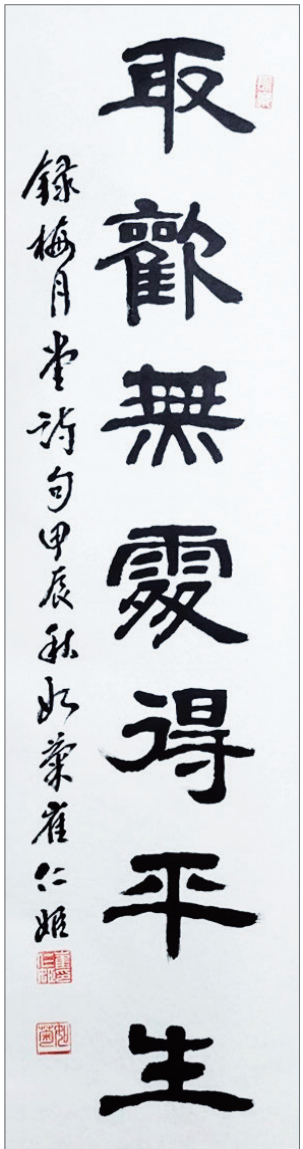 取歡無處得平生
錄梅月堂詩句甲辰秋如菊崔仁姬